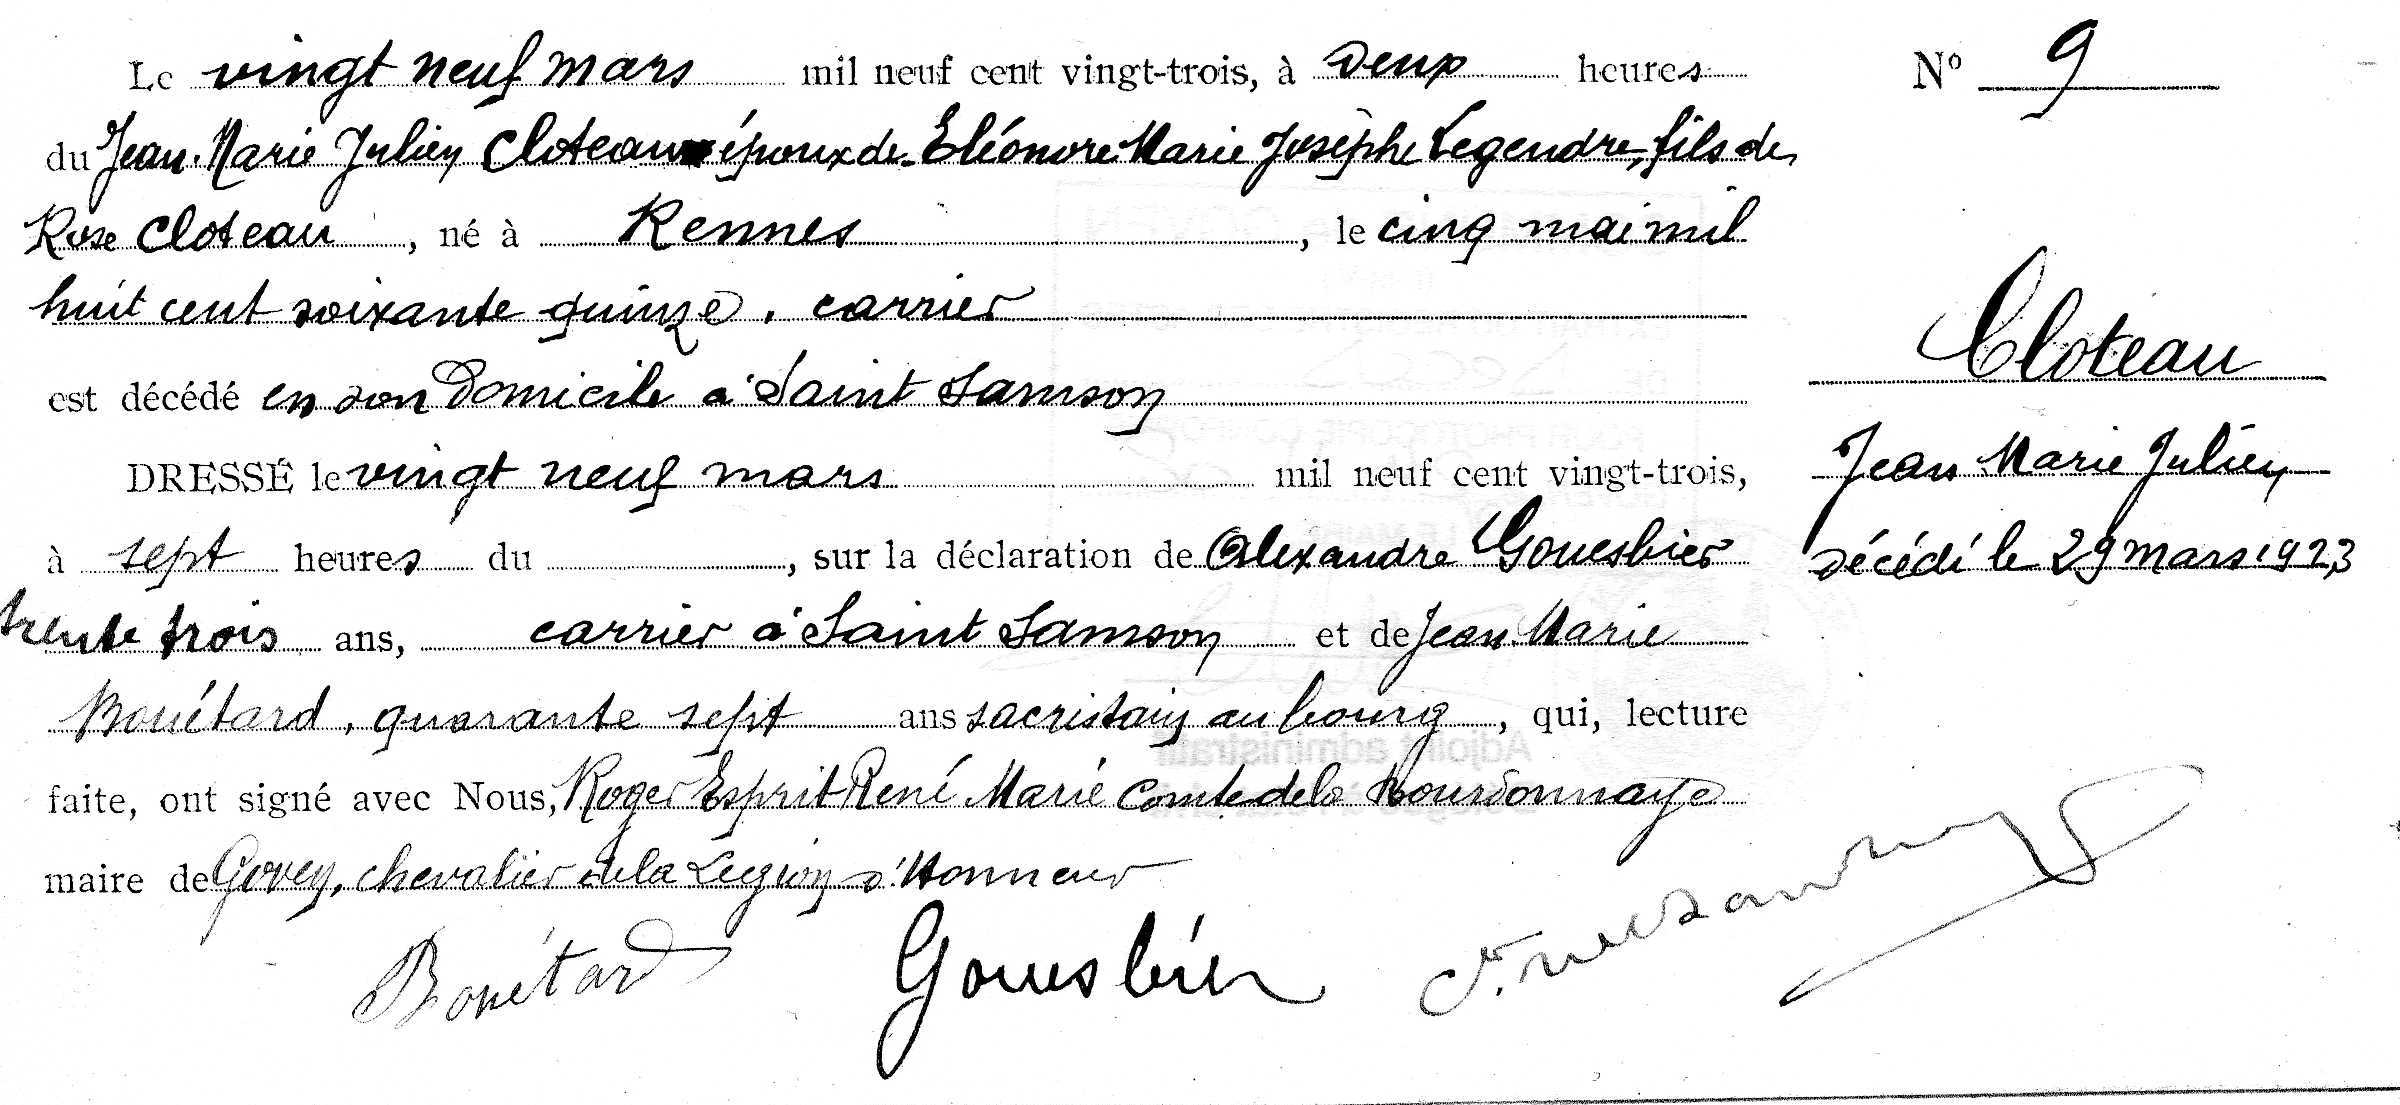 Le vingt neuf mars mil neuf cent vingt-trois, à deux heures
du Jean Marie Julien Cloteau époux de Eléonore Marie Josèphe Legendre, fils de
Rose Cloteau, né à Rennes, le cinq mai mil
huit cent soixante quinze, carrier
est décédé en son domicile à Saint Samson
DRESSÉ le vingt neuf mars mil neuf cent vingt-trois,
à sept heures du , sur la déclaration de Alexandre Gouesbier
trente trois ans, carrier à Saint Samson et de Jean Marie
Bouétard, quarante sept ans sacristain au bourg, qui, lecture
faite, ont signé avec Nous, Roger Esprit René Marie Comte de la Bourdonnaye
maire de Goven, chevalier de la Legion d'Honneur
Bouétard Gouesbier
N° 9
Cloteau
Jean Marie Julien
Décédé le 29 mars 1923
Adjoint administratif